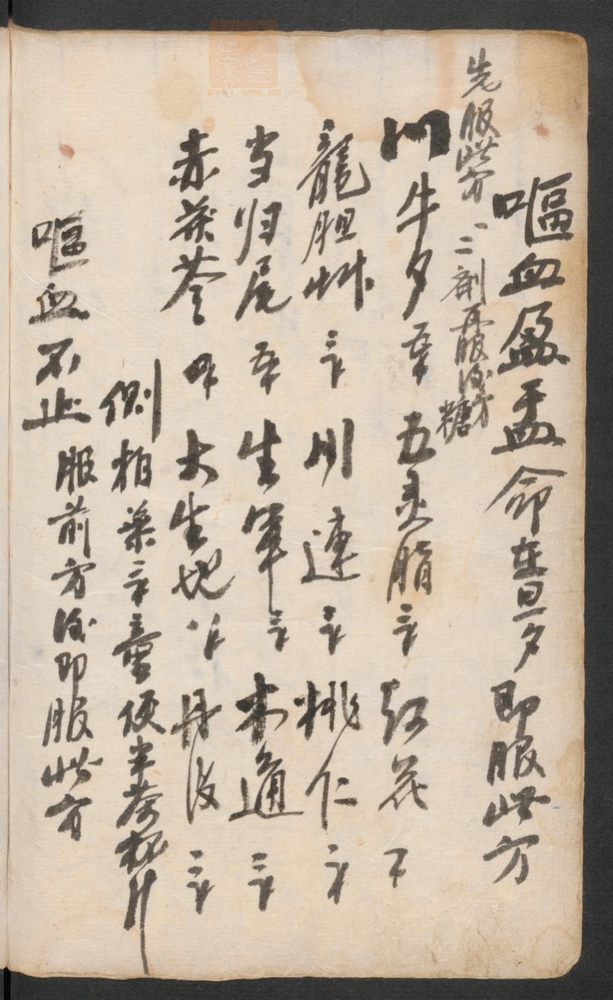 嘔血盈盂命在旦夕即服此方
先服此方一二劑再服後方
糖
川牛夕 五灵脂 红花
龍胆艸 川連 桃仁
当归尾 生軍 木通
赤茯苓 大生地 丹皮
側柏葉 童便半茶杯
嘔血不止服前方後即服此方